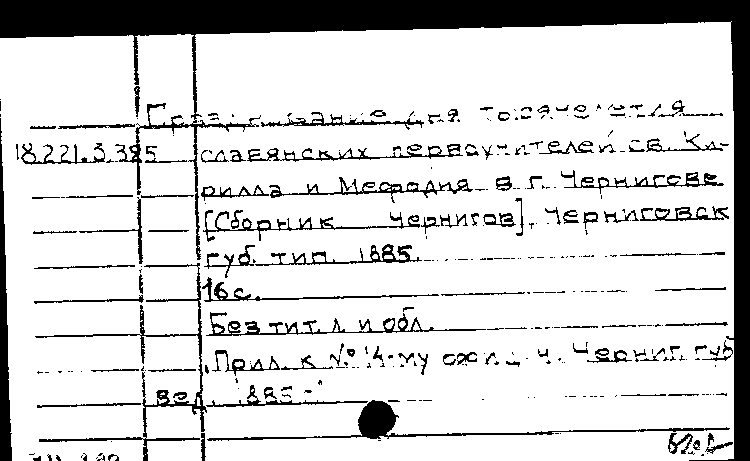 Празднование дня тысячелетия
18.221.3.385 славянских первоучителей св. Ки-
рилла и Мефодия в г. Чернигове
[Сборник Чернигов], Черниговск
губ. тип. 1885.
16 с.
Без тит. л. и обл.
Прил. к № 14-му ч. Черниг. губ
вед. 1885